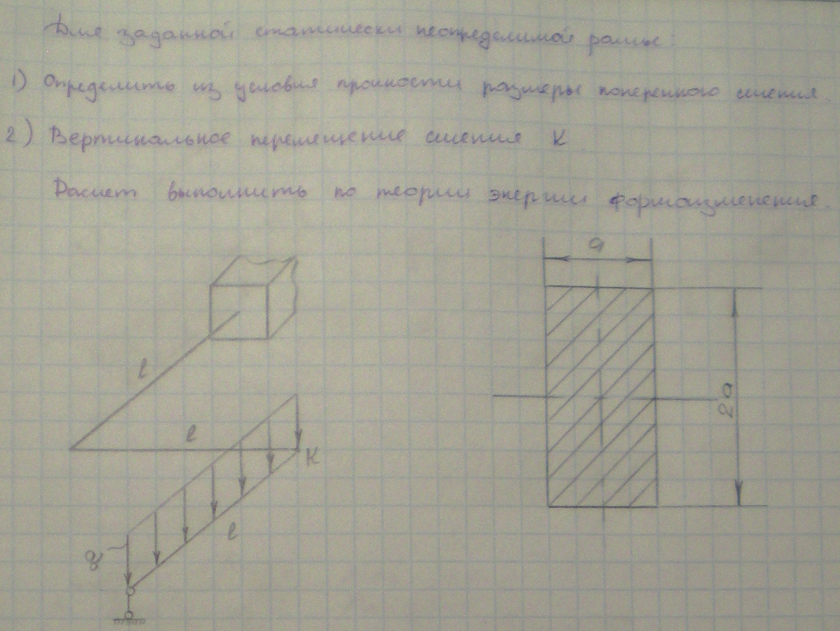 Для заданной статически неопределимой рамы:
1) Определить из условия прочности размеры поперечного сечения.
2) Вертикальное перемещение сечения К
Расчет выполнить по теории энергии формоизменения.
a
l
2a
l
К
l
q